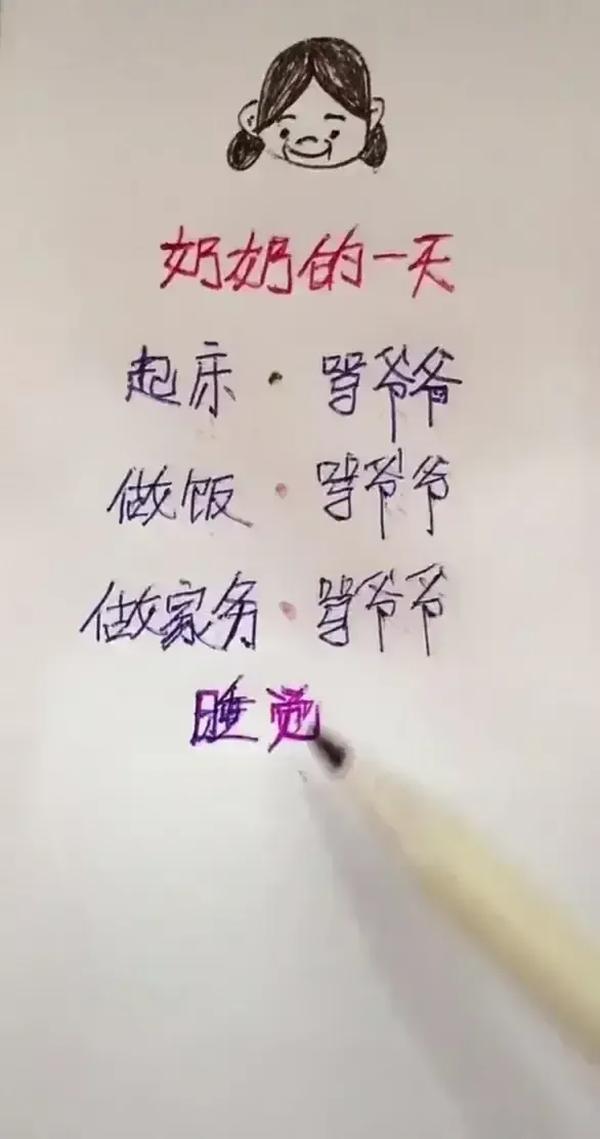 奶奶的一天
起床·骂爷爷
做饭·骂爷爷
做家务·骂爷爷
睡觉